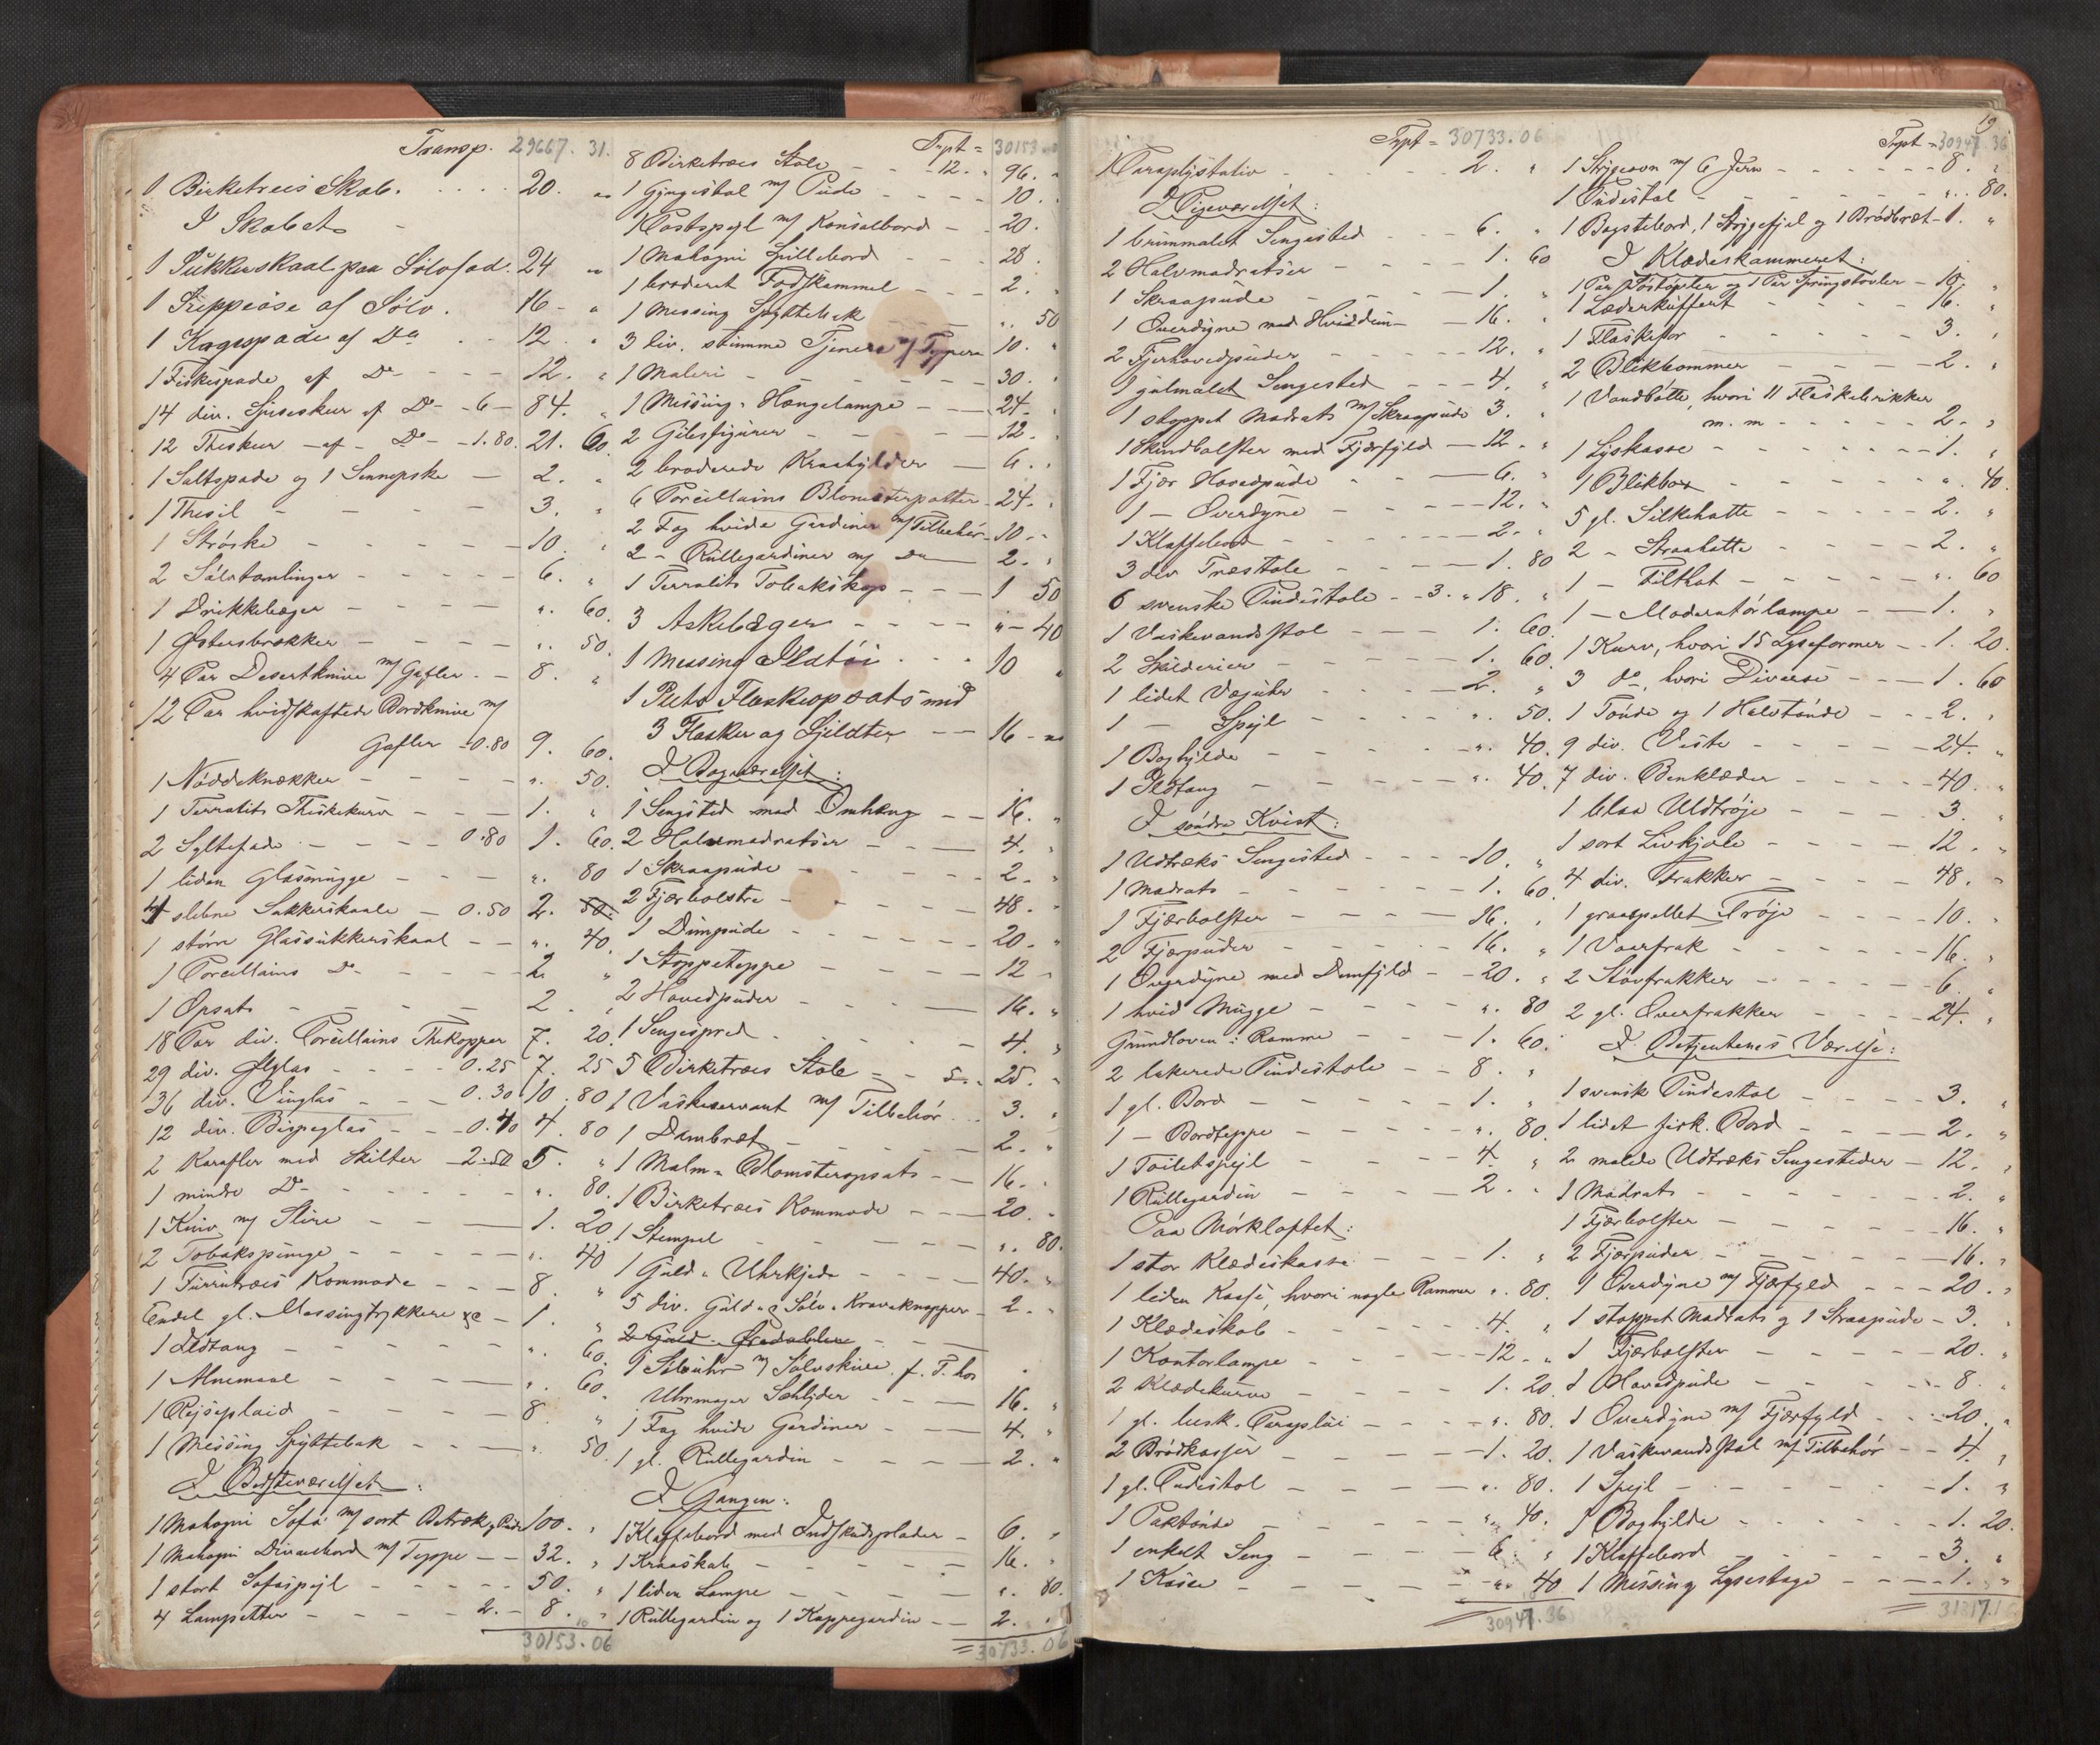 Transp. 29667. 31.
1 Birketræes Skab. . . . . 20. "
I Skabet
1 Sukkerskaal paa Sølvfad. 24 "
1 Suppeøse af Sølv. 16 - "
1 Kagespade af Do . . 12. "
1 Fiskespade af Do - - - - 12. "
14 div. Spiseskeer af Do - 6 - 84. "
12 Theskeer - af - Do - 1.80. 21. 60
1 Saltspade og 1 Sennepske - 2. "
1 Thesil - - - - 3. "
1 Strøske - - - - 10. "
2 Sølvtamlinger - - - - 6. "
1 Drikkebæger - - - - ". 60.
1 Østersbrækker - - - ". 50.
4 Par Desertknive m/ Gafler. - 8. "
12 Par hvidskaftede Bordknive m/
Gafler - 0.80 9. 60.
1 Nøddeknækker - - - - ". 50.
1 Terralits Theskekurv - - - 1. "
2 Syltefade - - - - 0.80 1. 60.
1 liden Glasmugge - - - ". 80
4 slebne Sukkerskaale - 0.50 2. 50.
1 større Glassukkerskaal - - ". 40.
1 Porcellains Do - - - - 2. "
1 Opsats - - - - 2. "
18 Par div. Porcellains Thekopper 7. 20.
29 div. Ølglas - - - - 0.25 7. 25
36 div. Vinglas - - - 0.30 10. 80
12 div. Bispeglas - - 0.40 4. 80
2 Karafler med Skilter 2.50 5. "
1 mindre Do - - - - ". 80.
1 Kniv m/ Slire - - - 1. 20
2 Tobakspunge - - - - ". 40
1 Furutræes Kommode - - - 8. "
Endel gl. Messingtrykkere &c - 1. "
1 Ildtang - - - - ". 60.
1 Alnemaal - - - - ". 60.
1 Rejseplaid - - - - 8. "
1 Messing Spyttebak - - - ". 50
I Bedsteværelset:
1 Mahogni Sofa m/ sort Betræk, Puder 100. "
1 Mahogni Divanbord m/ Teppe - - 32. "
1 stort Sofaspejl - - - - 50. "
4 Lampetter - - - - 2. - 8. "
30153.06
Trpt = 30153
8 Birketræes Stole - - - 12. " 96. "
1 Gyngestol m/ Pude - - - - 10. "
1 Postspejl m/ Konsolbord - - 20.
1 Mahogni Spillebord - - - 28.
1 broderet Fodskammel - - - 2. "
1 Messing Spyttebak - - - ". 50
3 div. stumme Tjenere m/ 10. "
1 Maleri - - - - - 30. "
1 Messing-Hængelampe - - - 24. "
2 Gibsfigurer - - - - 12. "
2 broderede Kraahylder - - 6. "
6 Porcellains Blomsterpotter - 24. "
2 Fag hvide Gardiner m/ Tilbehør - 10. -
2 - Rullegardiner m/ Do - 2. "
1 Terralits Tobakskop - - - 1 50
3 Askebæger - - - - " - 40
1 Messing Ildtøi . . . 10 "
1 Plets Flaskeopsats med
3 Flasker og Skildter - - 16 - "
I Bagværelset:
1 Sengsted med Omhæng - - 16. "
2 Halvmadratser - - - 4. "
1 Skraapude - - - - 2. "
2 Fjærbolstre - - - - 48. "
1 Dunpude - - - - 20. "
1 Stoppeteppe - - - - 12 "
2 Hovedpuder - - - - 16. "
1 Sengespred . - - - - 4. "
5 Birketræes Stole - - 5. " 25. "
1 Vaskeservant m/ Tilbehør . . 3. "
1 Dambræt - - - - 2. "
1 Malm-Blomsteropsats - - 16. "
1 Birketræes Kommode - - - 20. "
1 Stempel - - - - ". 80.
1 Guld-Uhrkjede - - - - 40. "
5 div. Guld og Sølv-Kraveknapper - 2. "
2 Guld-Øredobber - - -
1 Stueuhr m/ Sølvskive f. T. hos
Uhrmager Sehljder - - - 16. "
1 Fag hvide Gardiner - - - 4. "
1 gl. Rullegardin - - - - 2. "
I Gangen:
1 Klaffebord med Indskudsplader - 6. "
1 Kraaskab - - - - 16. "
1 liden Lampe - - - - ". 80.
1 Rullegardin og 1 Kappegardin - - 2. "
= 30733.06
Trpt = 30733.06
1 Paraplystativ - - - - - 2. "
I Pigeværelset:
1 brunmalet Sengested - - - 6. "
2 Halvmadratser - - - - 1. 60
1 Skraapude - - - - 1. "
1 Overdyne med Hviddun - - 16. "
2 Fjerhovedpuder - - - - 12. "
1 gulmalet Sengested - - - 4. "
1 stoppet Madrats m/ Skraapude 3. "
1 Skindbolster med Fjærfyld - 12. "
1 Fjær Hovedpude - - - 6. "
1 - Overdyne - - - - 12. "
1 Klaffebord - - - - 2. "
3 div Træstole - - - - 1. 80
6 svenske Pindestole - - 3. " 18. "
1 Vaskevandsstol - - - 1. 60.
2 Skilderier - - - - 1. 60.
1 lidet Væguhr - - - - 2. "
1 - Spejl - - - - ". 50.
1 Boghylde - - - - ". 40.
1 Ildtang - - - - ". 40.
I søndre Kvist:
1 Udtræks Sengested - - - - 10. "
1 Madrats - - - - 1. 60
1 Fjærbolster - - - - 16. "
2 Fjærpuder - - - - 16. "
1 Overdyne med Dunfyld - - 20. "
1 hvid Mugge - - - - ". 80
Grundloven i Ramme - - - 1. 60.
2 lakerede Pindestole - - - 8. "
1 gl. Bord - - - - 1. "
1 - Bordteppe - - - - ". 80.
1 Toiletspejl - - - - 4. "
1 Rullegardin - - - - 2. "
Paa Mørkloftet:
1 stor Klædeskasse - - - 1. "
1 liden Kasse, hvori nogle Rammer ". 80.
1 Klædeskab - - - - 4. "
1 Kontorlampe - - - - 12. "
2 Klædekurve - - - - 1. 20.
1 gl. busk. Paraplui - - - ". 80.
2 Brødkasser - - - - 1. 20.
1 gl. Pudestol - - - - ". 80.
1 Paktønde - - - - ". 40.
1 enkelt Seng - - - - 6. "
1 Kasse - - - - ". 40
30947.36
19
Trpt = 30947.36
1 Strygeovn m/ 6 Jern - - - - - 8. "
1 Pudestol - - - - ". 80.
1 Bagstebord, 1 Strygefjel og 1 Brødbræt - 1. "
I Klædeskammeret:
1 Par og 1 Par Springstøvler - 10. "
1 Læderkuffert - - - - 16. "
1 Flaskefor - - - - - 3. "
2 Blikbommer - - - - 2. "
1 Vandbøtte, hvori 11 Flaskebrikker
m. m - - - - - 2. "
1 Lyskasse - - - - - 1. "
1 Blikbox - - - - - ". 40.
5 gl. Silkehatte - - - - - 2. "
2 - Straahatte - - - - 2. "
1 - Filthat - - - - - ". 60
1 - Moderatørlampe - - - 1. "
1 Kurv, hvori 15 Lyseformer - - 1. 20.
3 do, hvori Diverse - - - 1. 60
1 Tønde og 1 Halvtønde - - - 2. "
9 div. Veste - - - - 24. "
7 div. Benklæder - - - - 40. "
1 blaa Uldtrøje - - - - 3. "
1 sort Livkjole - - - - 12. "
4 div. Frakker - - - - 48. "
1 graaspettet Trøje - - - - 10. "
1 Vaarfrak - - - - 16. "
2 Støvfrakker - - - - 6. "
2 gl. Overfrakker - - - - 24. "
I Betjentenes Værelse:
1 svensk Pindestol - - - - 3. "
1 lidet firk. Bord - - - - 2. "
2 malede Udtræks Sengesteder - 12. "
1 Madrats - - - - - 2. "
1 Fjærbolster - - - - - 16. "
2 Fjærpuder - - - - - 16. "
1 Overdyne m/ Fjærfyld - - - 20. "
1 stoppet Madrats og 1 Skraapude - 3. "
1 Fjærbolster - - - - - 20. "
1 Hovedpude - - - - - 8. "
1 Overdyne m/ Fjærfyld - - - 20. "
1 Vaskevandsstol m/ Tilbehør - - 4. "
1 Spejl - - - - - 1. "
1 Boghylde - - - - - 1. 20.
1 Klaffebord - - - - - 3. "
1 Messing Lysestage - - - - 1. "